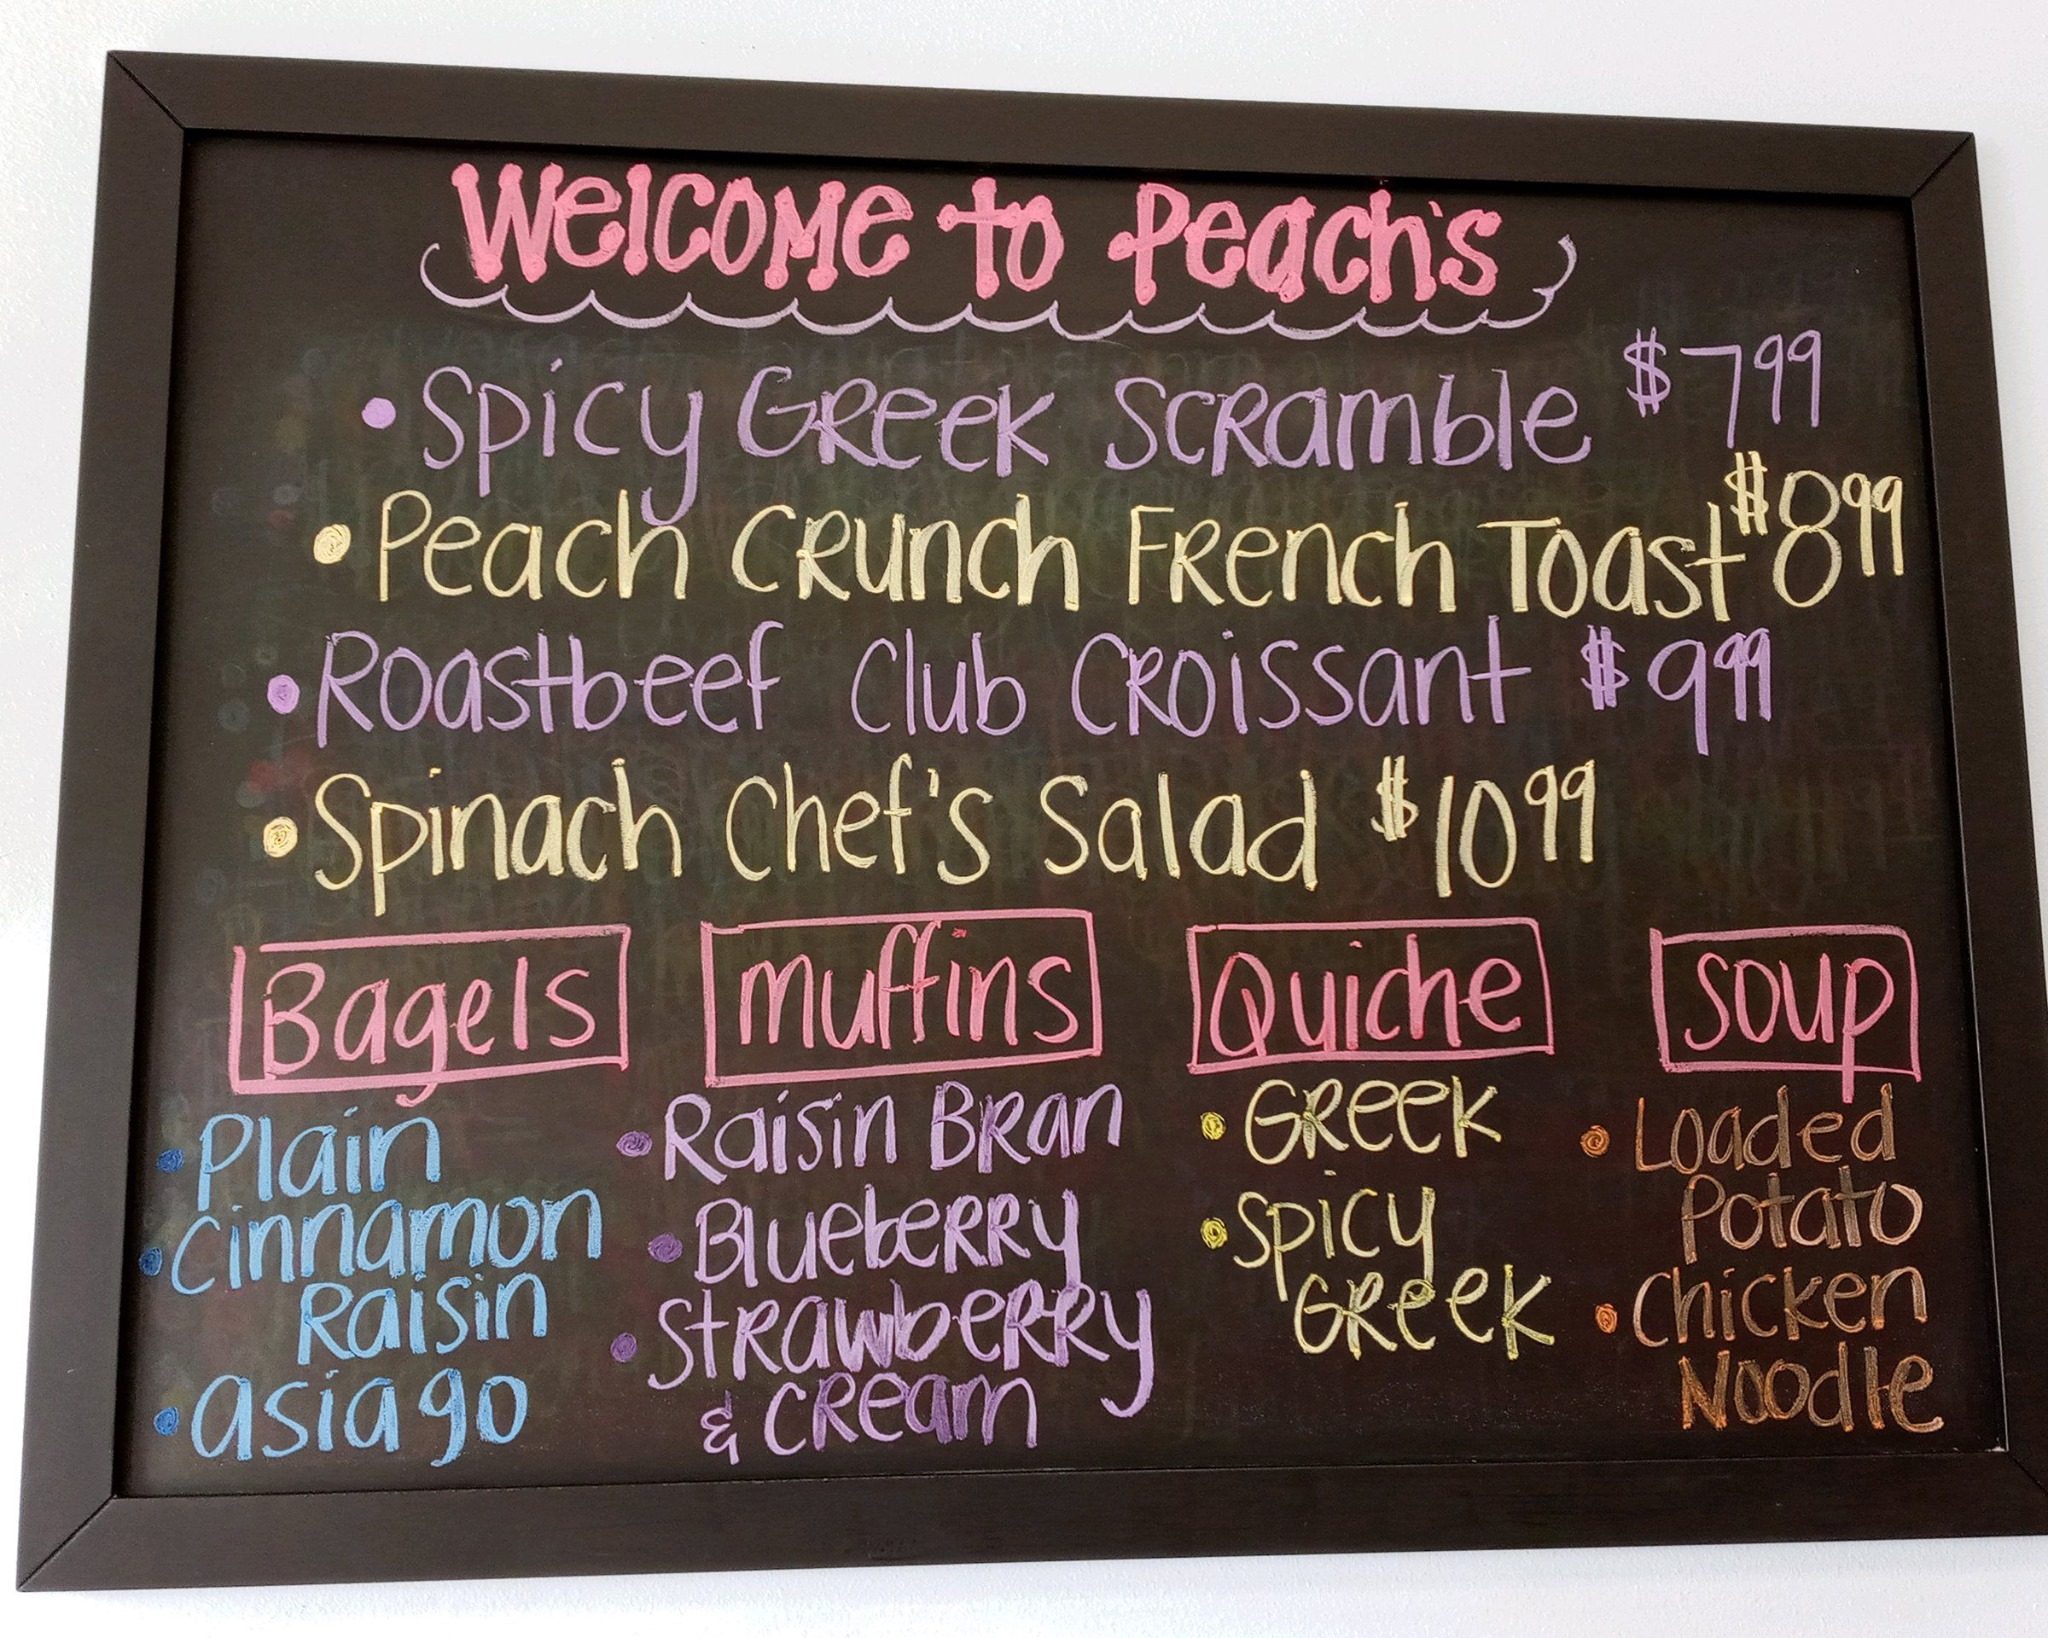 Welcome to Peach's
• Spicy Greek Scramble $7.99
• Peach Crunch French Toast $8.99
• Roastbeef Club Croissant $9.99
• Spinach Chef's Salad $10.99
Bagels
• Plain
• Cinnamon
Raisin
• asiago
muffins
• Raisin Bran
• Blueberry
• Strawberry
& cream
Quiche
• Greek
• Spicy
Greek
Soup
• Loaded
Potato
• Chicken
Noodle